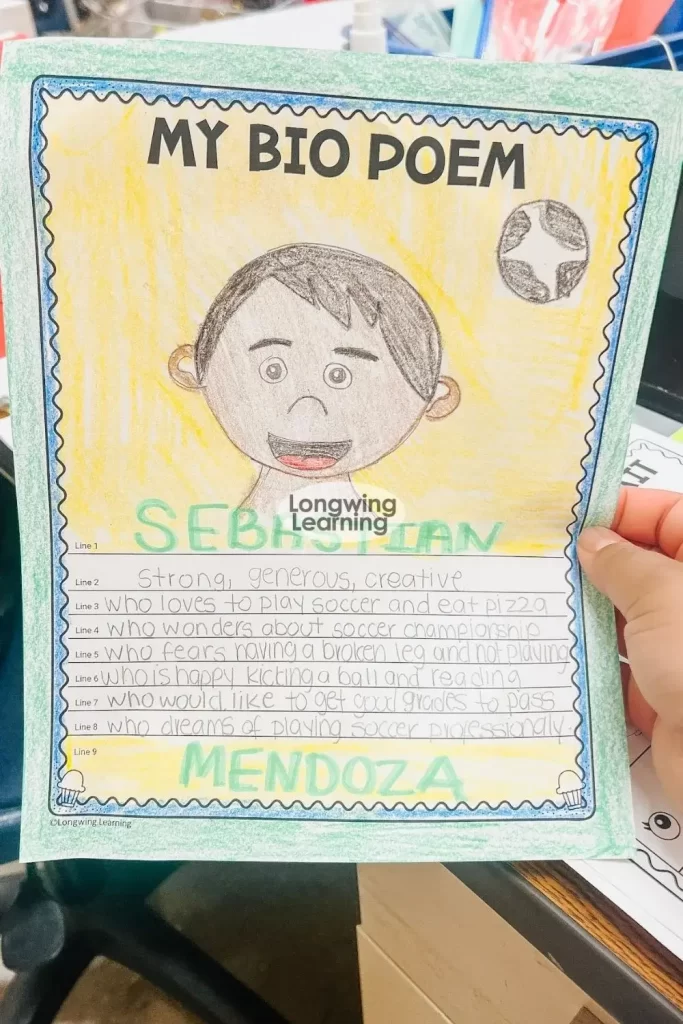 MY BIO POEM
Longwing
Learning
Line 1 SEBASTIAN
Line 2 strong, generous, creative
Line 3 who loves to play soccer and eat pizza
Line 4 who wonders about soccer championship
Line 5 who fears having a broken leg and not playing
Line 6 who is happy kicking a ball and reading
Line 7 who would like to get good grades to pass
Line 8 who dreams of playing soccer professionaly.
Line 9 MENDOZA
©Longwing Learning